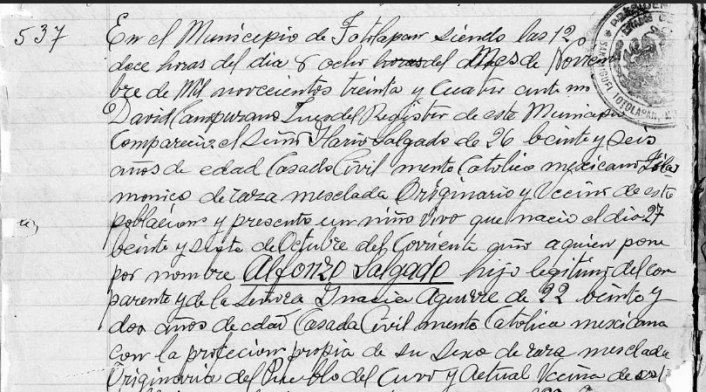 537 En el Municipio de Totolapan siendo las 12
doce horas del dia 8 ocho horas del Mes de Noviem
bre de Mil novecientos treinta y Cuatro ante mi
David Campuzano Jues del Register de este Municipio
Comparecio el Señor Ilario Salgado de 26 beinte y seis
años de edad Casado Civil mente Catolico mexicano
de raza mesclada Originario y Vecino de esta
poblacion y presento un niño vivo que nacio el dia 27
beinte y siete de Octubre del Corriente año a quien pone
por nombre Alfonzo Salgado hijo legitimo del con
parente y de la señora Ynacia Aguirre de 22 beinte y
dos años de edad Casada Civil mente Catolica mexicana
con la protecion propia de su Sexo de raza mesclada
Originaria del Pueblo del Curo y actual Vecina de est